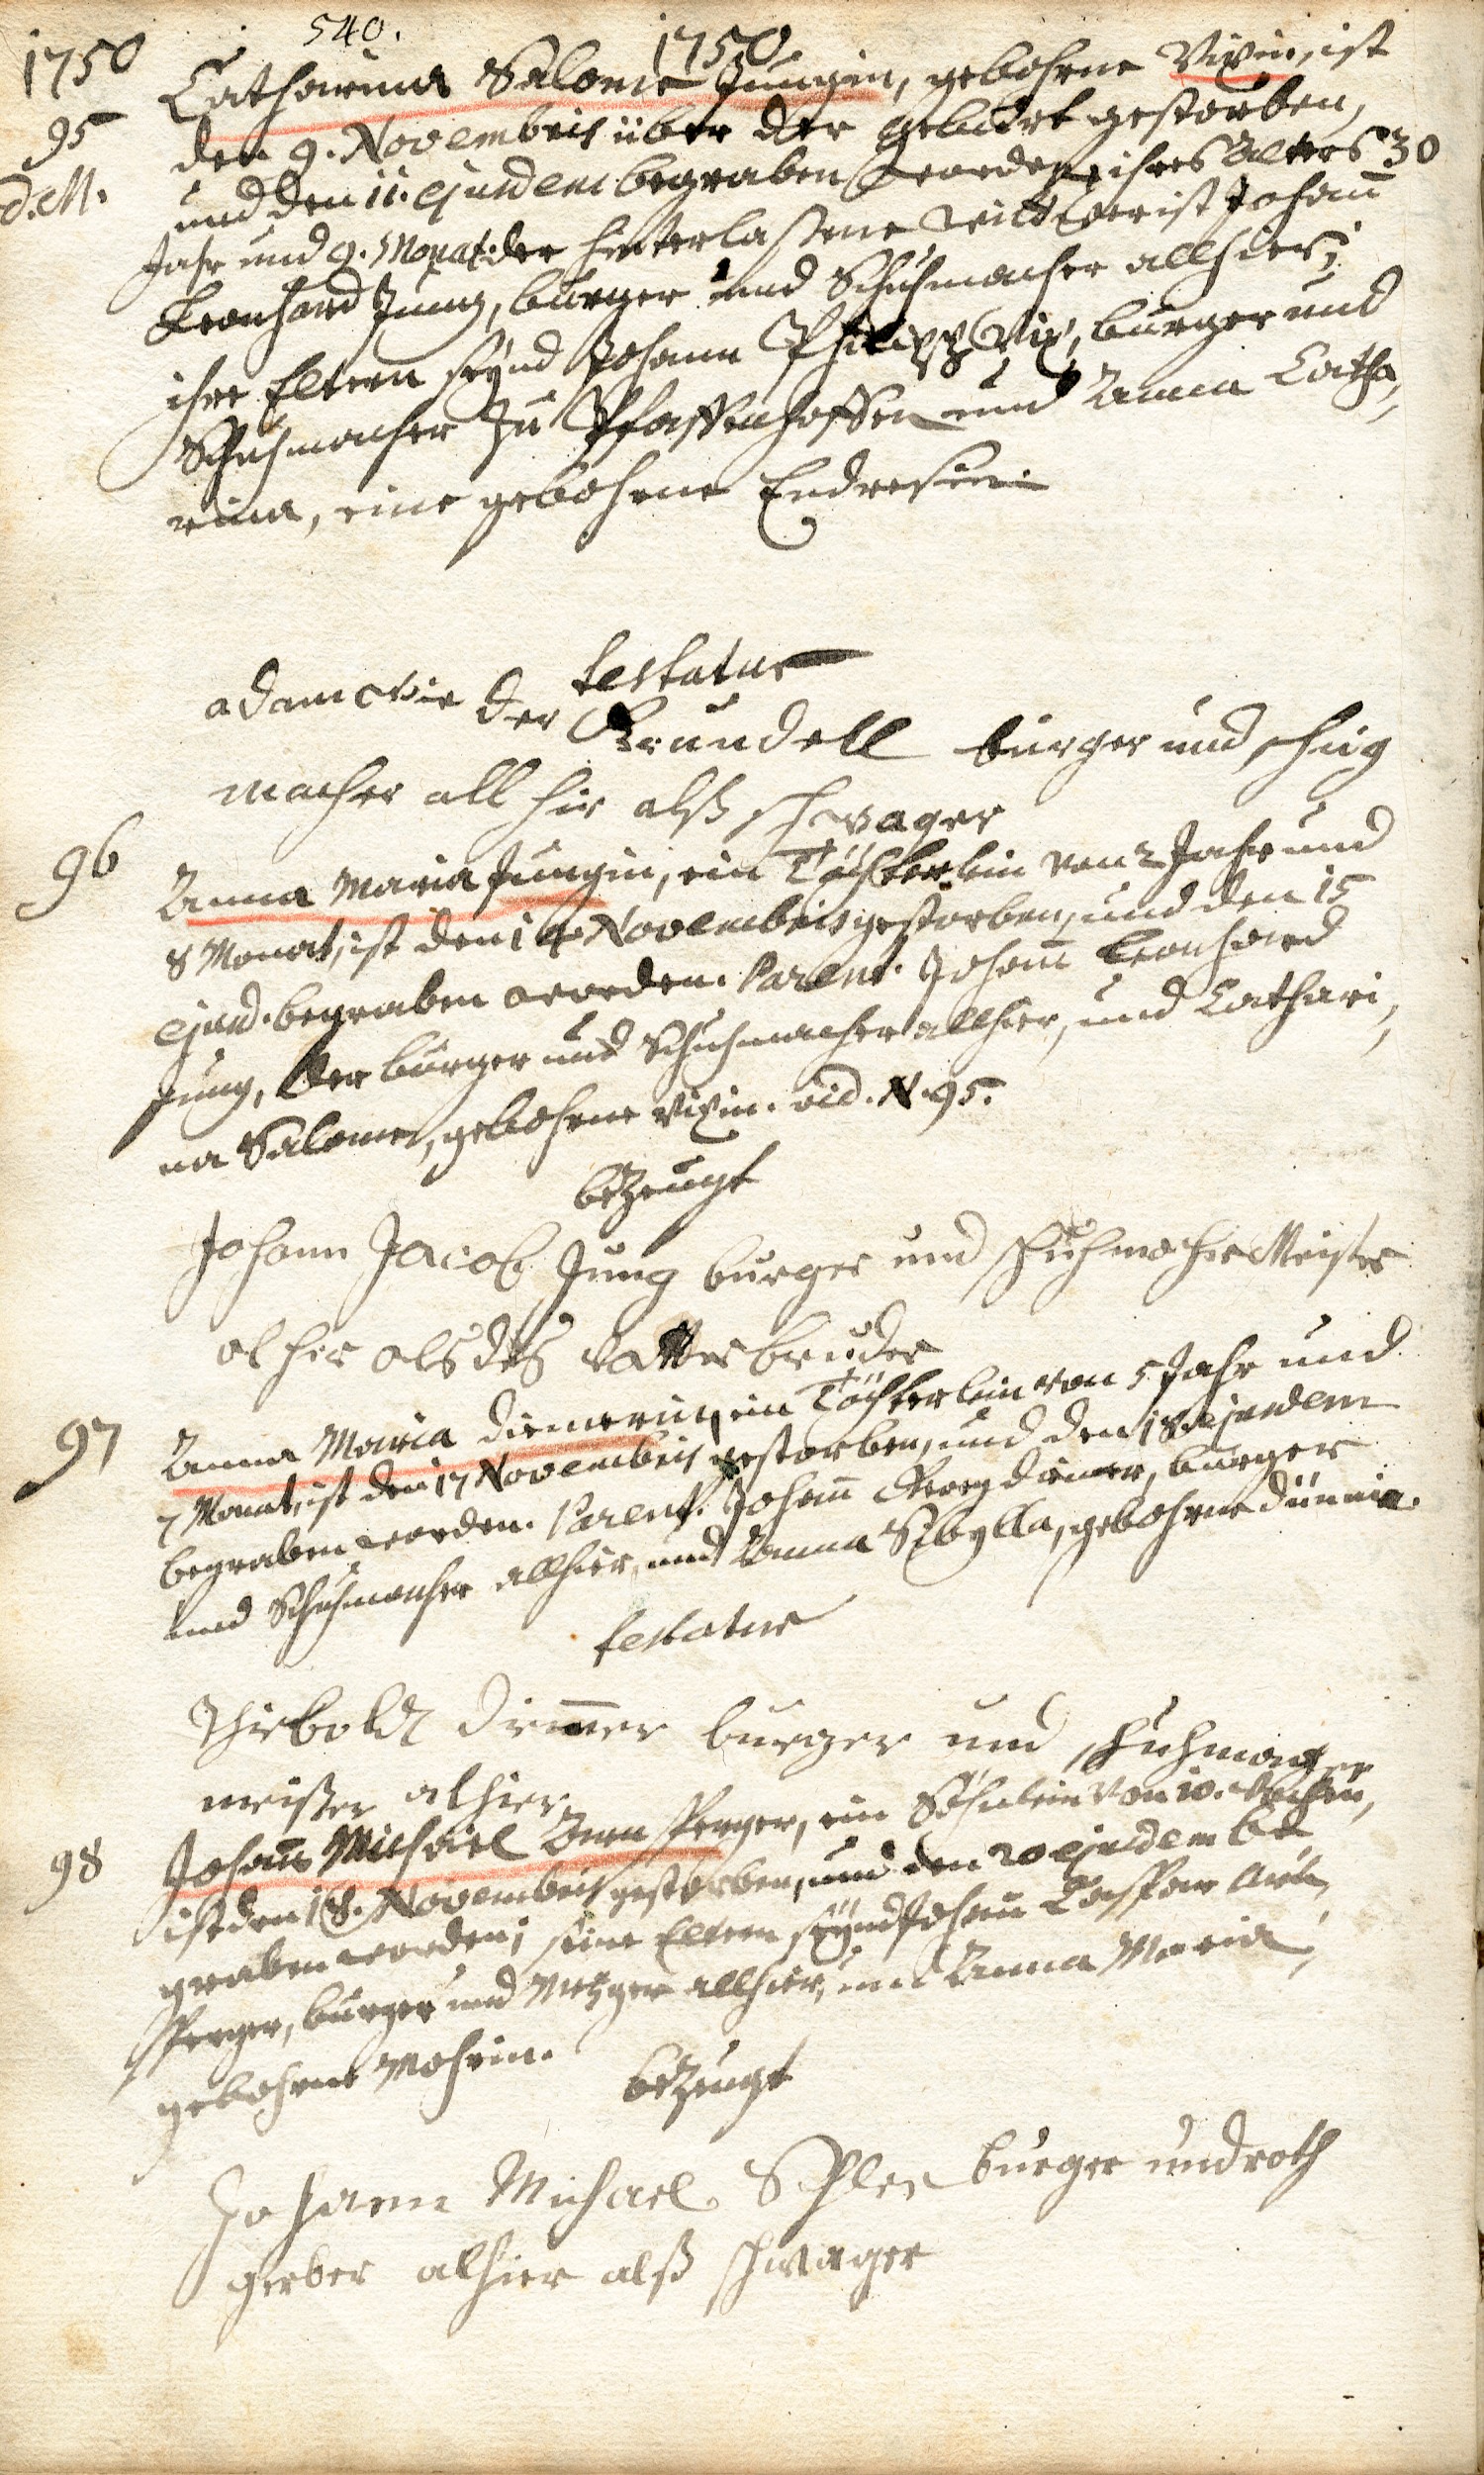 540.
1750
1750
95
d. M.
Catharina Salome Jungin, gebohrne Vixin, ist
den 9. Novembris über der geburt gestorben,
und den 11. ejusdem begraben worden, ihres alters 30
Jahr und 9. Monat. der hinterlaßene wittwer ist Johañ
Leonhard Jung, burger und Schuhmacher allhier;
ihre Eltern seynd Johann Philipp Vix, burger und
Schuhmacher zu Pfaffenhoffen und Anna Catha,
rina, eine gebohrne Endresin.
testatur
adam der Grundell burger und schug
macher all hir alß schwager
96
Anna Maria Jungin, ein Töchterlein von 2 Jahr und
8 Monat, ist den 14 Novembris gestorben, und den 15
ejusd. begraben worden. Parent. Johañ Leonhard
Jung, der burger und Schuhmacher allhier, und Cathari,
na Salome, gebohrne Vixin. vid. N. 95.
bezeugt
Johann Jacob Jung burger und schuhmacher Meister
al hier als des vatter bruder
97
Anna Maria Diemerin, ein Töchterlein von 5 Jahr und
7 Monat, ist den 17 Novembris gestorben, und den 18 ejusdem
begraben worden. Parent. Johañ Georg Diemer, burger
und Schuhmacher allhier, und Anna Sibylla, gebohrne Dünnin.
testatur
Thiebold Diemer burger und schuhmacher
meister alhier
98
Johañ Michael Arnsperger, ein Söhnlein von 10. wochen,
ist den 18. Novembris gestorben, und den 20 ejusdem be
graben worden; seine Eltern seynd Johañ Caspar Arn,
sperger, burger und Metzger allhier, und Anna Maria,
gebohrne Mohrin.
bezeugt
Johann Michael burger und roth
gerber alhier alß schwager